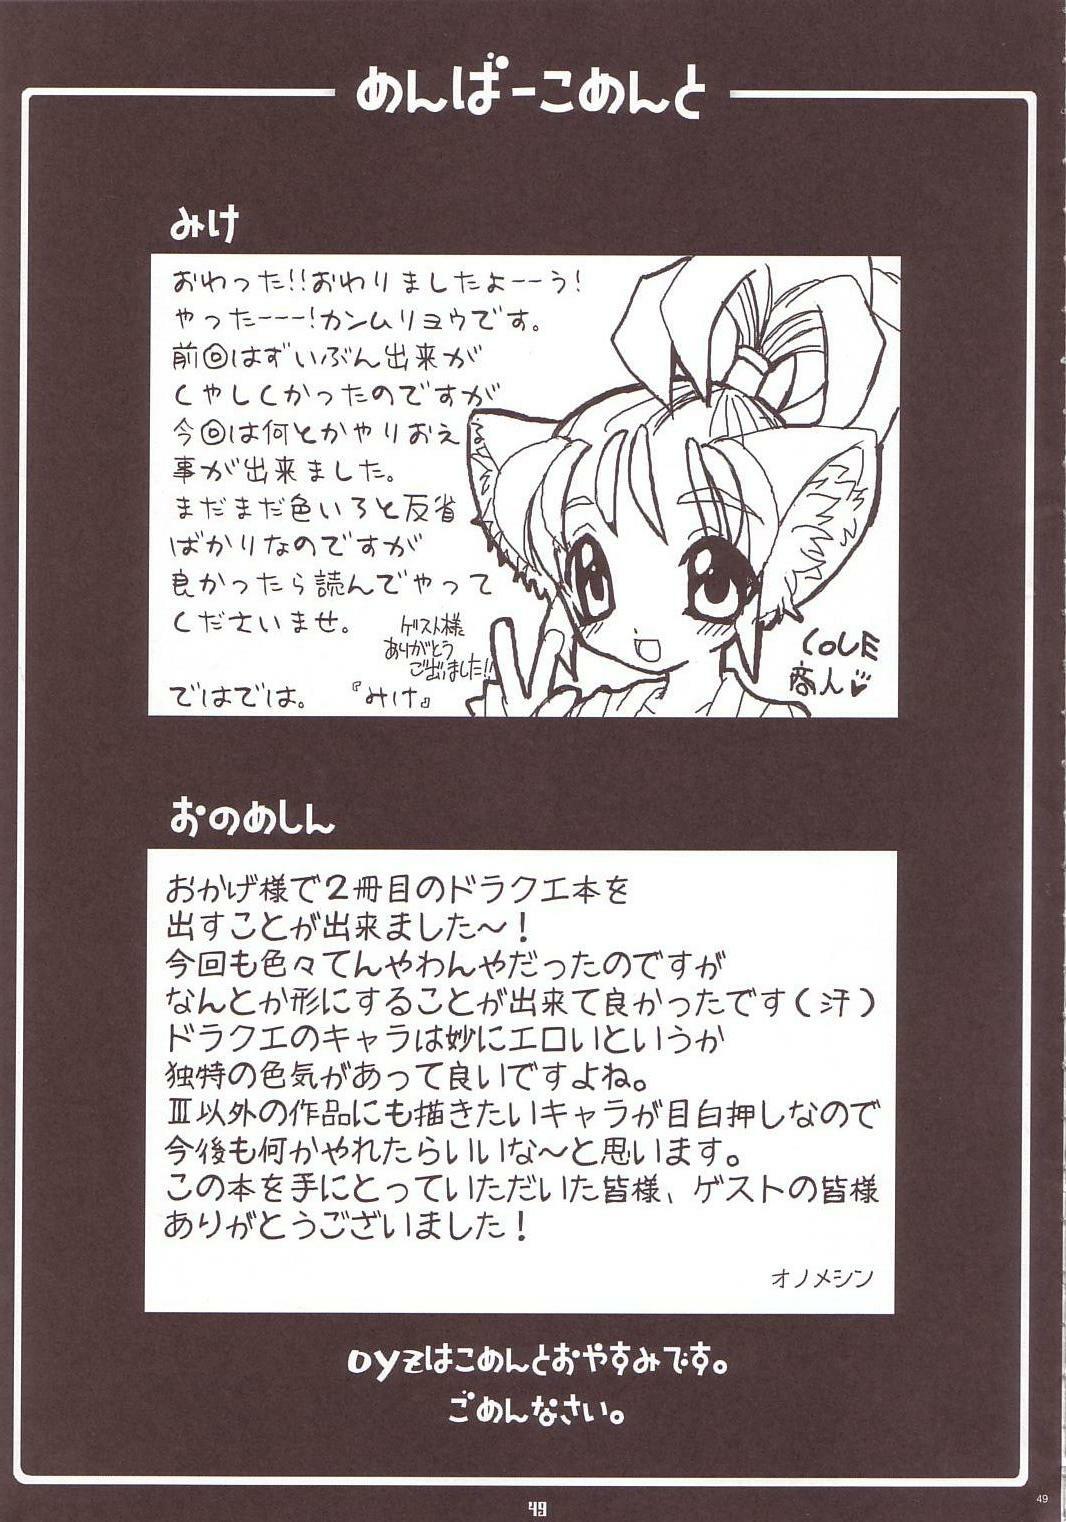 めんばーこめんと
みけ
おわった!!おわりましたよーーう!
やったーーー!カンムリョウです。
前回はずいぶん出来が
くやしくかったのですが
今回は何とかやりおえる
事が出来ました。
まだまだ色いろと反省
ばかりなのですが
良かったら読んでやって
くださいませ。
ゲスト様
ありがとう
ございました!!
ではでは。 『みけ』
LOVE
商人
おのめしん
おかげ様で2冊目のドラクエ本を
出すことが出来ました〜!
今回も色々てんやわんやだったのですが
なんとか形にすることが出来て良かったです(汗)
ドラクエのキャラは妙にエロいというか
独特の色気があって良いですよね。
Ⅲ以外の作品にも描きたいキャラが目白押しなので
今後も何かやれたらいいな〜と思います。
この本を手にとっていただいた皆様、ゲストの皆様
ありがとうございました!
オノメシン
oyzはこめんとおやすみです。
ごめんなさい。
49
49